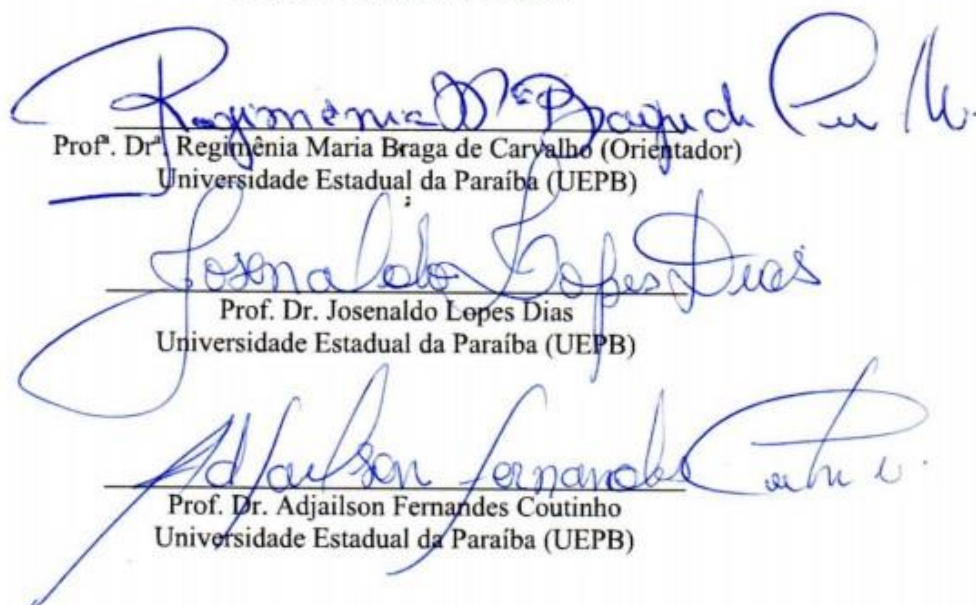 Regimênia Mª Braga de
Profª. Drª. Regimênia Maria Braga de Carvalho (Orientador)
Universidade Estadual da Paraíba (UEPB)
Josenaldo Lopes Dias
Prof. Dr. Josenaldo Lopes Dias
Universidade Estadual da Paraíba (UEPB)
Adjailson Fernandes Coutinho
Prof. Dr. Adjailson Fernandes Coutinho
Universidade Estadual da Paraíba (UEPB)